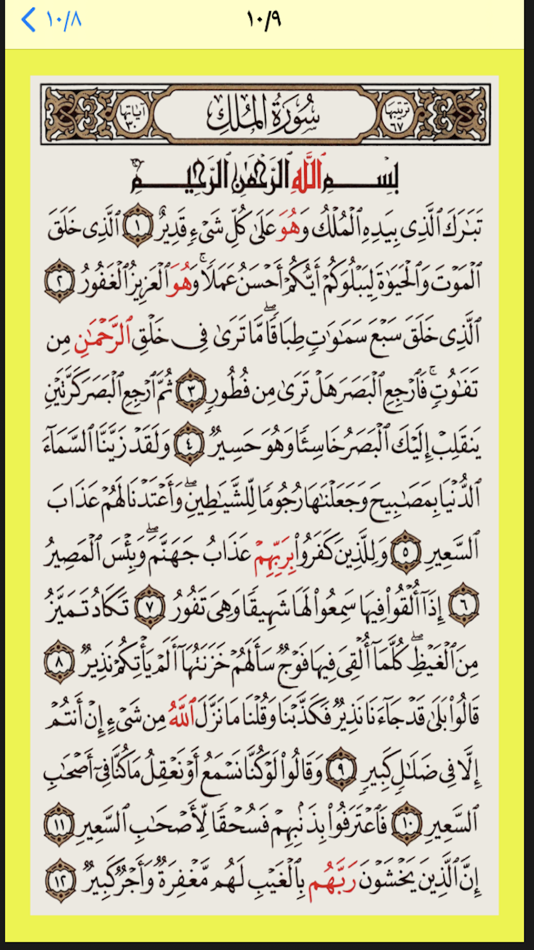 ١٠/٨
١٠/٩
ترتيبها ٦٧ سُورَةُ الْمُلْكِ آياتها ٣٠
بِسْمِ ٱللَّهِ ٱلرَّحْمَٰنِ ٱلرَّحِيمِ
تَبَٰرَكَ ٱلَّذِى بِيَدِهِ ٱلْمُلْكُ وَهُوَ عَلَىٰ كُلِّ شَىْءٍ قَدِيرٌ ١ ٱلَّذِى خَلَقَ
ٱلْمَوْتَ وَٱلْحَيَوٰةَ لِيَبْلُوَكُمْ أَيُّكُمْ أَحْسَنُ عَمَلًا ۚ وَهُوَ ٱلْعَزِيزُ ٱلْغَفُورُ ٢
ٱلَّذِى خَلَقَ سَبْعَ سَمَٰوَٰتٍ طِبَاقًا ۖ مَّا تَرَىٰ فِى خَلْقِ ٱلرَّحْمَٰنِ مِن
تَفَٰوُتٍ ۖ فَٱرْجِعِ ٱلْبَصَرَ هَلْ تَرَىٰ مِن فُطُورٍ ٣ ثُمَّ ٱرْجِعِ ٱلْبَصَرَ كَرَّتَيْنِ
يَنقَلِبْ إِلَيْكَ ٱلْبَصَرُ خَاسِئًا وَهُوَ حَسِيرٌ ٤ وَلَقَدْ زَيَّنَّا ٱلسَّمَآءَ
ٱلدُّنْيَا بِمَصَٰبِيحَ وَجَعَلْنَٰهَا رُجُومًا لِّلشَّيَٰطِينِ ۖ وَأَعْتَدْنَا لَهُمْ عَذَابَ
ٱلسَّعِيرِ ٥ وَلِلَّذِينَ كَفَرُوا۟ بِرَبِّهِمْ عَذَابُ جَهَنَّمَ ۖ وَبِئْسَ ٱلْمَصِيرُ
٦ إِذَآ أُلْقُوا۟ فِيهَا سَمِعُوا۟ لَهَا شَهِيقًا وَهِىَ تَفُورُ ٧ تَكَادُ تَمَيَّزُ
مِنَ ٱلْغَيْظِ ۖ كُلَّمَآ أُلْقِىَ فِيهَا فَوْجٌ سَأَلَهُمْ خَزَنَتُهَآ أَلَمْ يَأْتِكُمْ نَذِيرٌ ٨
قَالُوا۟ بَلَىٰ قَدْ جَآءَنَا نَذِيرٌ فَكَذَّبْنَا وَقُلْنَا مَا نَزَّلَ ٱللَّهُ مِن شَىْءٍ إِنْ أَنتُمْ
إِلَّا فِى ضَلَٰلٍ كَبِيرٍ ٩ وَقَالُوا۟ لَوْ كُنَّا نَسْمَعُ أَوْ نَعْقِلُ مَا كُنَّا فِىٓ أَصْحَٰبِ
ٱلسَّعِيرِ ١٠ فَٱعْتَرَفُوا۟ بِذَنۢبِهِمْ فَسُحْقًا لِّأَصْحَٰبِ ٱلسَّعِيرِ ١١
إِنَّ ٱلَّذِينَ يَخْشَوْنَ رَبَّهُم بِٱلْغَيْبِ لَهُم مَّغْفِرَةٌ وَأَجْرٌ كَبِيرٌ ١٢